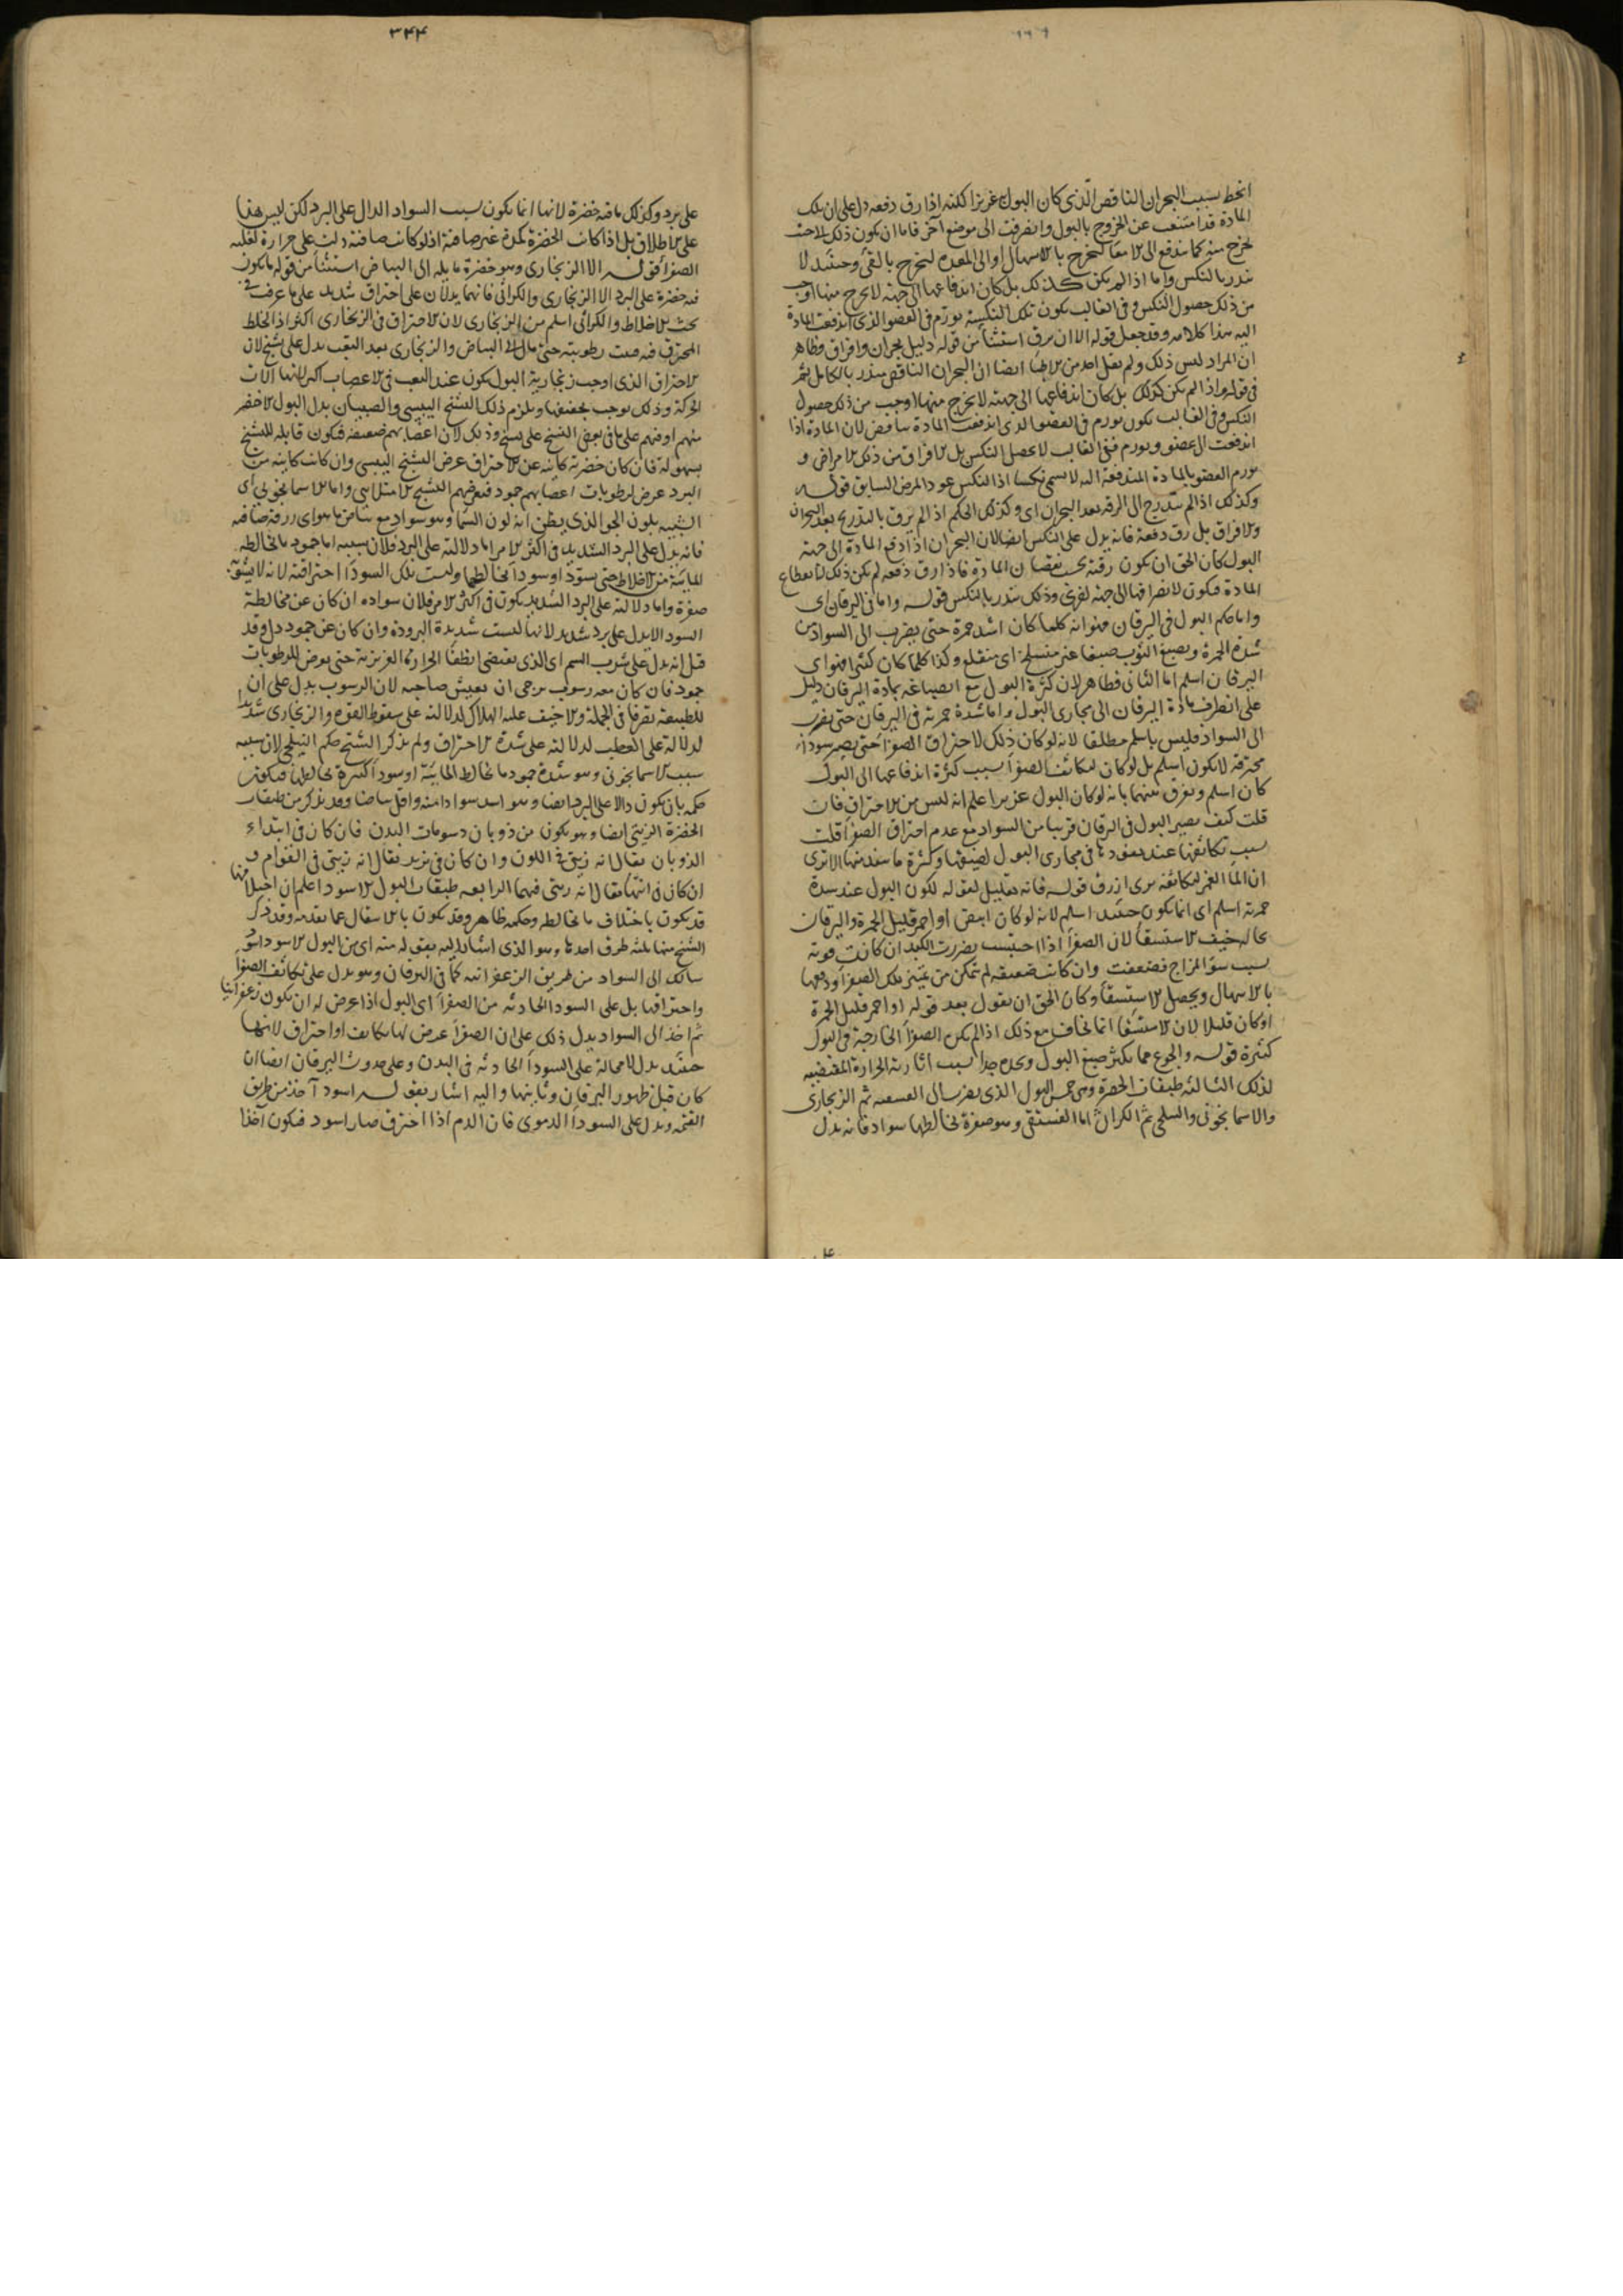 انحط بسبب البحران الناقص الذى كان البول غزيرا لكنه اذا رق دفعه دل على ان تلك
المادة قد امتنعت عن الخروج بالبول وانصرفت الى موضع آخر فاما ان يكون ذلك لاحت
تخرج منه كما يندفع الى الامعا لتخرج بالاسهال او الى المعده لتخرج بالقئ وحينئد لا
ينذر بالنكس واما اذا لم يكن كذلك بل كان اندفاعها الى جهة لا يخرج منها اوجب
من ذلك حصول النكس وفى الغالب يكون تلك النكسة بورم فى العضو الذى اندفعت المادة
اليه هذا كلامه وقد جعل قوله الا ان يرق استثنأ من قوله دليل بحران وافراق وظاهر
ان المراد ليس ذلك ولم يقل احد من الاطبا ايضا ان البحران الناقص ينذر بالكامل ثم
فى قوله واذا لم يكن كذلك بل كان اندفاعها الى جهة لا يخرج منها اوجب من ذلك حصول
النكس وفى الغالب يكون بورم فى العضو الذى اندفعت المادة تناقض لان المادة اذا
اندفعت الى عضو وتورم ففى الغالب لا يحصل النكس بل الافراق من ذلك الامراض و
تورم العضو بالمادة المندفعة اليه لا يسمى نكسا اذا النكس عود المرض السابق قوله
وكذلك اذا لم يتدرج الى الرقة بعد البحران اى وكذلك الحكم اذا لم يرق بالتدريج بعد البحران
والافراق بل رق دفعة فانه يدل على النكس ايضا لان البحران اذا دفع المادة الى جهة
البول كان الحق ان يكون رقته بحسب نقصان المادة فاذا رق دفعه لم يكن ذلك لانقطاع
المادة فيكون لانصرافها الى جهة اخرى وذلك ينذر بالنكس قوله واما فى اليرقان اى
واما حكم البول فى اليرقان فهو انه كلما كان اشد حمرة حتى يضرب الى السواد من
شدة الحمرة ويصبغ الثوب صبغا غير منسلخ اى منقلع وكذا كلما كان كثيرا فهو اى
اليرقان اسلم اما الثانى فظاهر لان كثرة البول مع انصباغه بمادة اليرقان دليل
على انصراف مادة اليرقان الى مجارى البول واما شدة حمرته فى اليرقان حتى يضرب
الى السواد فليس باسلم مطلقا لانه لو كان ذلك لاحتراق الصفرأ حتى يصير سودأ
محترقة لا يكون اسلم بل لو كان لتكاثف الصفرأ بسبب كثرة اندفاعها الى البول
كان اسلم ويفرق بينهما بانه لو كان البول غزيرا علم انه ليس من الاحتراق فان
قلت كيف يصير البول فى اليرقان قريبا من السواد مع عدم احتراق الصفرأ قلت
بسبب تكاثفها عند نفوذها فى مجارى البول لضيقها وكثرة ما ينفذ منها الا ترى
ان المأ الغمر لتكاثفه يرى ازرق قوله فانه تعليل لقوله لكون البول عند شدة
حمرته اسلم اى انما يكون حينئد اسلم لانه لو كان ابيض او احمر قليل الحمرة واليرقان
بحاله خيف الاستسقأ لان الصفرأ اذا احتبست يضررت الكبد ان كانت قويه
بسبب سؤ المزاج فضعفت وان كانت ضعيفه لم تتمكن من تمييز تلك الصفرأ ودفعها
بالاسهال ويحصل الاستسقأ وكان الحق ان يقول بعد قوله او احمر قليل الحمرة
او كان قليلا لان الاستسقأ انما يخاف مع ذلك اذا لم يكن الصفرأ الخارجة فى البول
كثيرة قوله والجوع مما يكثر صبغ البول ويحده جدا بسبب اثارته الحرارة المقتضيه
لذلك الثالثه طبقات الخضرة وهى خمس البول الذى يضرب الى الفستقيه ثم الزنجارى
والاسمانجونى والنيلجى ثم الكراثى اما الفستقى وهو صفرة يخالطها سواد فانه يدل
٣٤٤
على برد وكذلك ما فيه خضرة لانها انما يكون بسبب السواد الدال على البرد لكن ليس هذا
على الاطلاق بل اذا كانت الخضرة كمدة غير صافية اذ لو كانت صافية دلت على حرارة لغلبه
الصفرأ قوله الا الزنجارى وهو خضرة مايله الى البياض استثنأ من قوله ما يكون
فيه خضرة على البرد الا الزنجارى والكراثى فانهما يدلان على احتراق شديد على ما عرفت فى
بحث الاخلاط والكراثى اسلم من الزنجارى لان الاحتراق فى الزنجارى اكثر اذ الخلط
المحترق فنيت رطوبته حتى مال الى البياض والزنجارى بعد التعب يدل على تشنج لان
الاحتراق الذى اوجب زنجارية البول يكون عند التعب فى الاعصاب اكثر لانها آلات
الحركة وذلك يوجب تجفيفها ويلزم ذلك التشنج اليبسى والصبيان يدل البول الاخضر
منهم او فيهم على ما فى بعض النسخ على تشنج وذلك لان اعضابهم ضعيفه فتكون قابله للتشنج
بسهوله فان كان خضرته كاينه عن الاحتراق عرض التشنج اليبسى وان كانت كاينه من
البرد عرض لرطوبات اعصابهم جمود فيعرضهم التشنج الامتلايى واما الاسمانجونى اى
الشبيه بلون الجو الذى يظن انه لون السمأ وهو سواد مع بياض ما هو اى زرقة صافيه
فانه يدل على البرد الشديد فى اكثر الامر اما دلالته على البرد فلان سببه اما جمود ما يخالطه
المائية من الاخلاط حتى يسود او سودأ يخالطها وليست تلك السودأ احتراقيه لانه لا يشوبه
صفرة واما دلالته على البرد الشديد يكون فى اكثر الامر فلان سواده ان كان عن مخالطة
السودأ لا يدل على برد شديد لانها ليست شديدة البرودة وان كان عن جمود دل وقد
قيل انه يدل على شرب السم اى الذى يقتضى انطفأ الحرارة الغريزية حتى يعرض للرطوبات
جمود فان كان معه رسوب يرجى ان يعيش صاحبه لان الرسوب يدل على ان
للطبيعة تصرفا فى الجملة والا خيف عليه الهلاك لدلالته على سقوط القوه والزنجارى شديد
لدلالة على العطب لدلالته على شدة الاحتراق ولم يذكر الشيخ حكم النيلجى لان سببه
سبب الاسمانجونى وهو شدة جمود ما يخالط المائية او سودأ كثيرة يخالطها فيكون
حكمه بان يكون دالا على البرد ايضا وهو اشد سوادا منه واقل بياضا وقد يذكر من طبقات
الخضرة الزيتى ايضا وهو يكون من ذوبان دسومات البدن فان كان فى ابتداء
الذوبان يقال انه زيتى فى اللون وان كان فى تزيد يقال انه زيتى فى القوام و
ان كان فى انتها يقال انه زيتى فيهما الرابعه طبقات البول الاسود اعلم ان اختلافها
قد يكون باختلاف ما يخالطه وحكمه ظاهر وقد يكون بالانتقال عما تقدمه وقد ذكر
الشيخ منها ثلثه طرق احدها وهو الذى اشار اليه بقوله منه اى من البول الاسود اسود
سالك الى السواد من طريق الزعفرانيه كما فى اليرقان وهو يدل على تكاثف الصفرأ
واحتراقها بل على السودأ الحادثه من الصفرأ اى البول اذا عرض له ان يكون زعفرانيا
ثم اخذ الى السواد يدل ذلك على ان الصفرأ عرض لها تكاثف او احتراق لانها
حينئد يدل لا محالة على السودأ الحادثه فى البدن وعلى حدوث اليرقان ايضا ان
كان قبل ظهور اليرقان وثانيها واليه اشار بقوله اسود آخذ من طريق
القتمه ويدل على السودأ الدموى فان الدم اذا احترق صار اسود فيكون آخذا